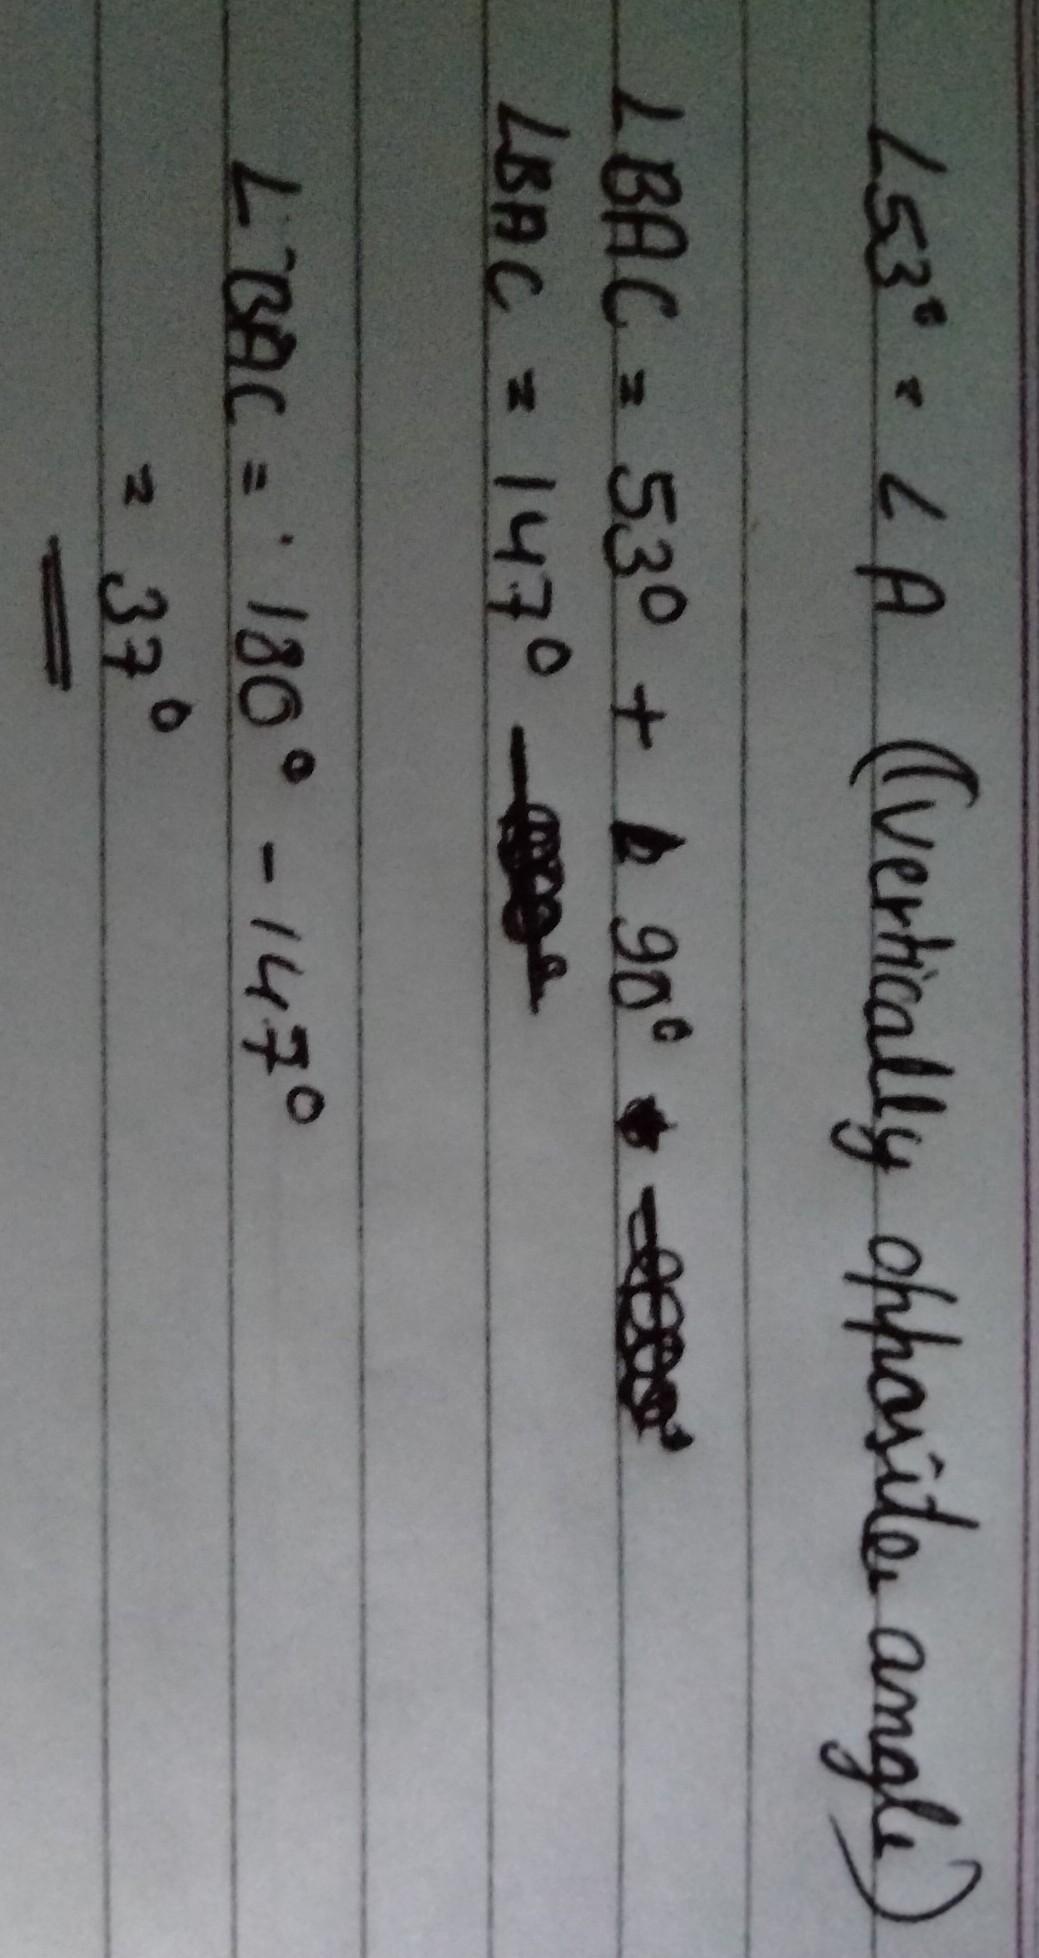 ∠53° = ∠A (Vertically opposite angle)
∠BAC = 53° + 90°
∠BAC = 147°
∠BAC = 180° - 147°
= 37°